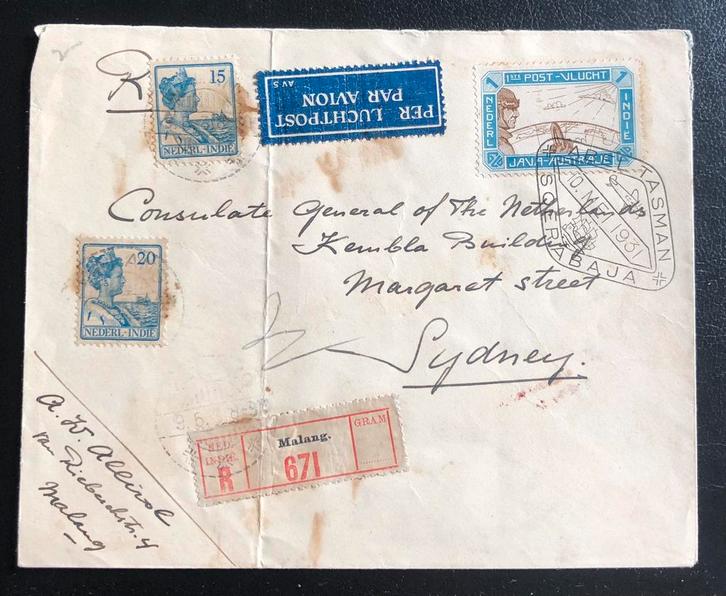 R
15
NEDERL-INDIE
PER LUCHTPOST
PAR AVION
AVS
1STE POST-VLUCHT
1 1
NEDERL INDIE
JAVA-AUSTRALIE
ABEL TASMAN
10. MEI 1931
SOERABAJA
Consulate General of The Netherlands
Kembla Building
Margaret street
Sydney.
20
NEDERL-INDIE
NED.
INDIE.
R
Malang.
671
GRAM
A. W.
Malang